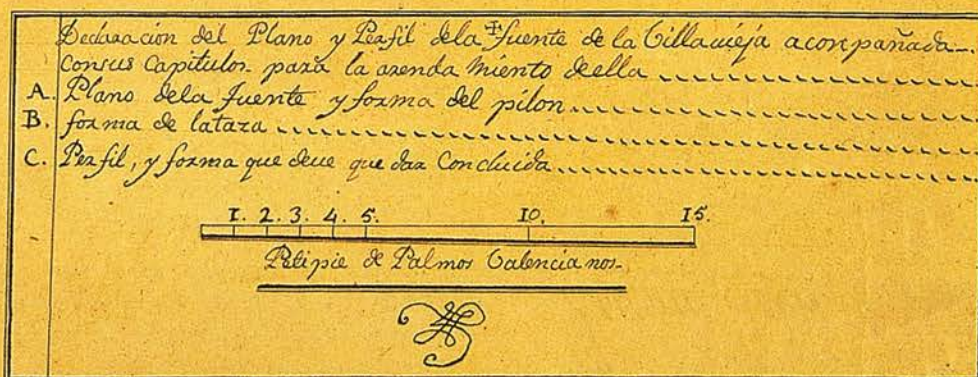 Declaracion del Plano y Perfil dela fuente de la Villavieja acompañada
consus Capitulos para la arenda miento deella
A. Plano dela fuente y forma del pilon
B. forma de lataza
C. Perfil, y forma que deve que dar Concluida
1. 2. 3. 4. 5. 10. 15.
Petipie de Palmos Valencia nos